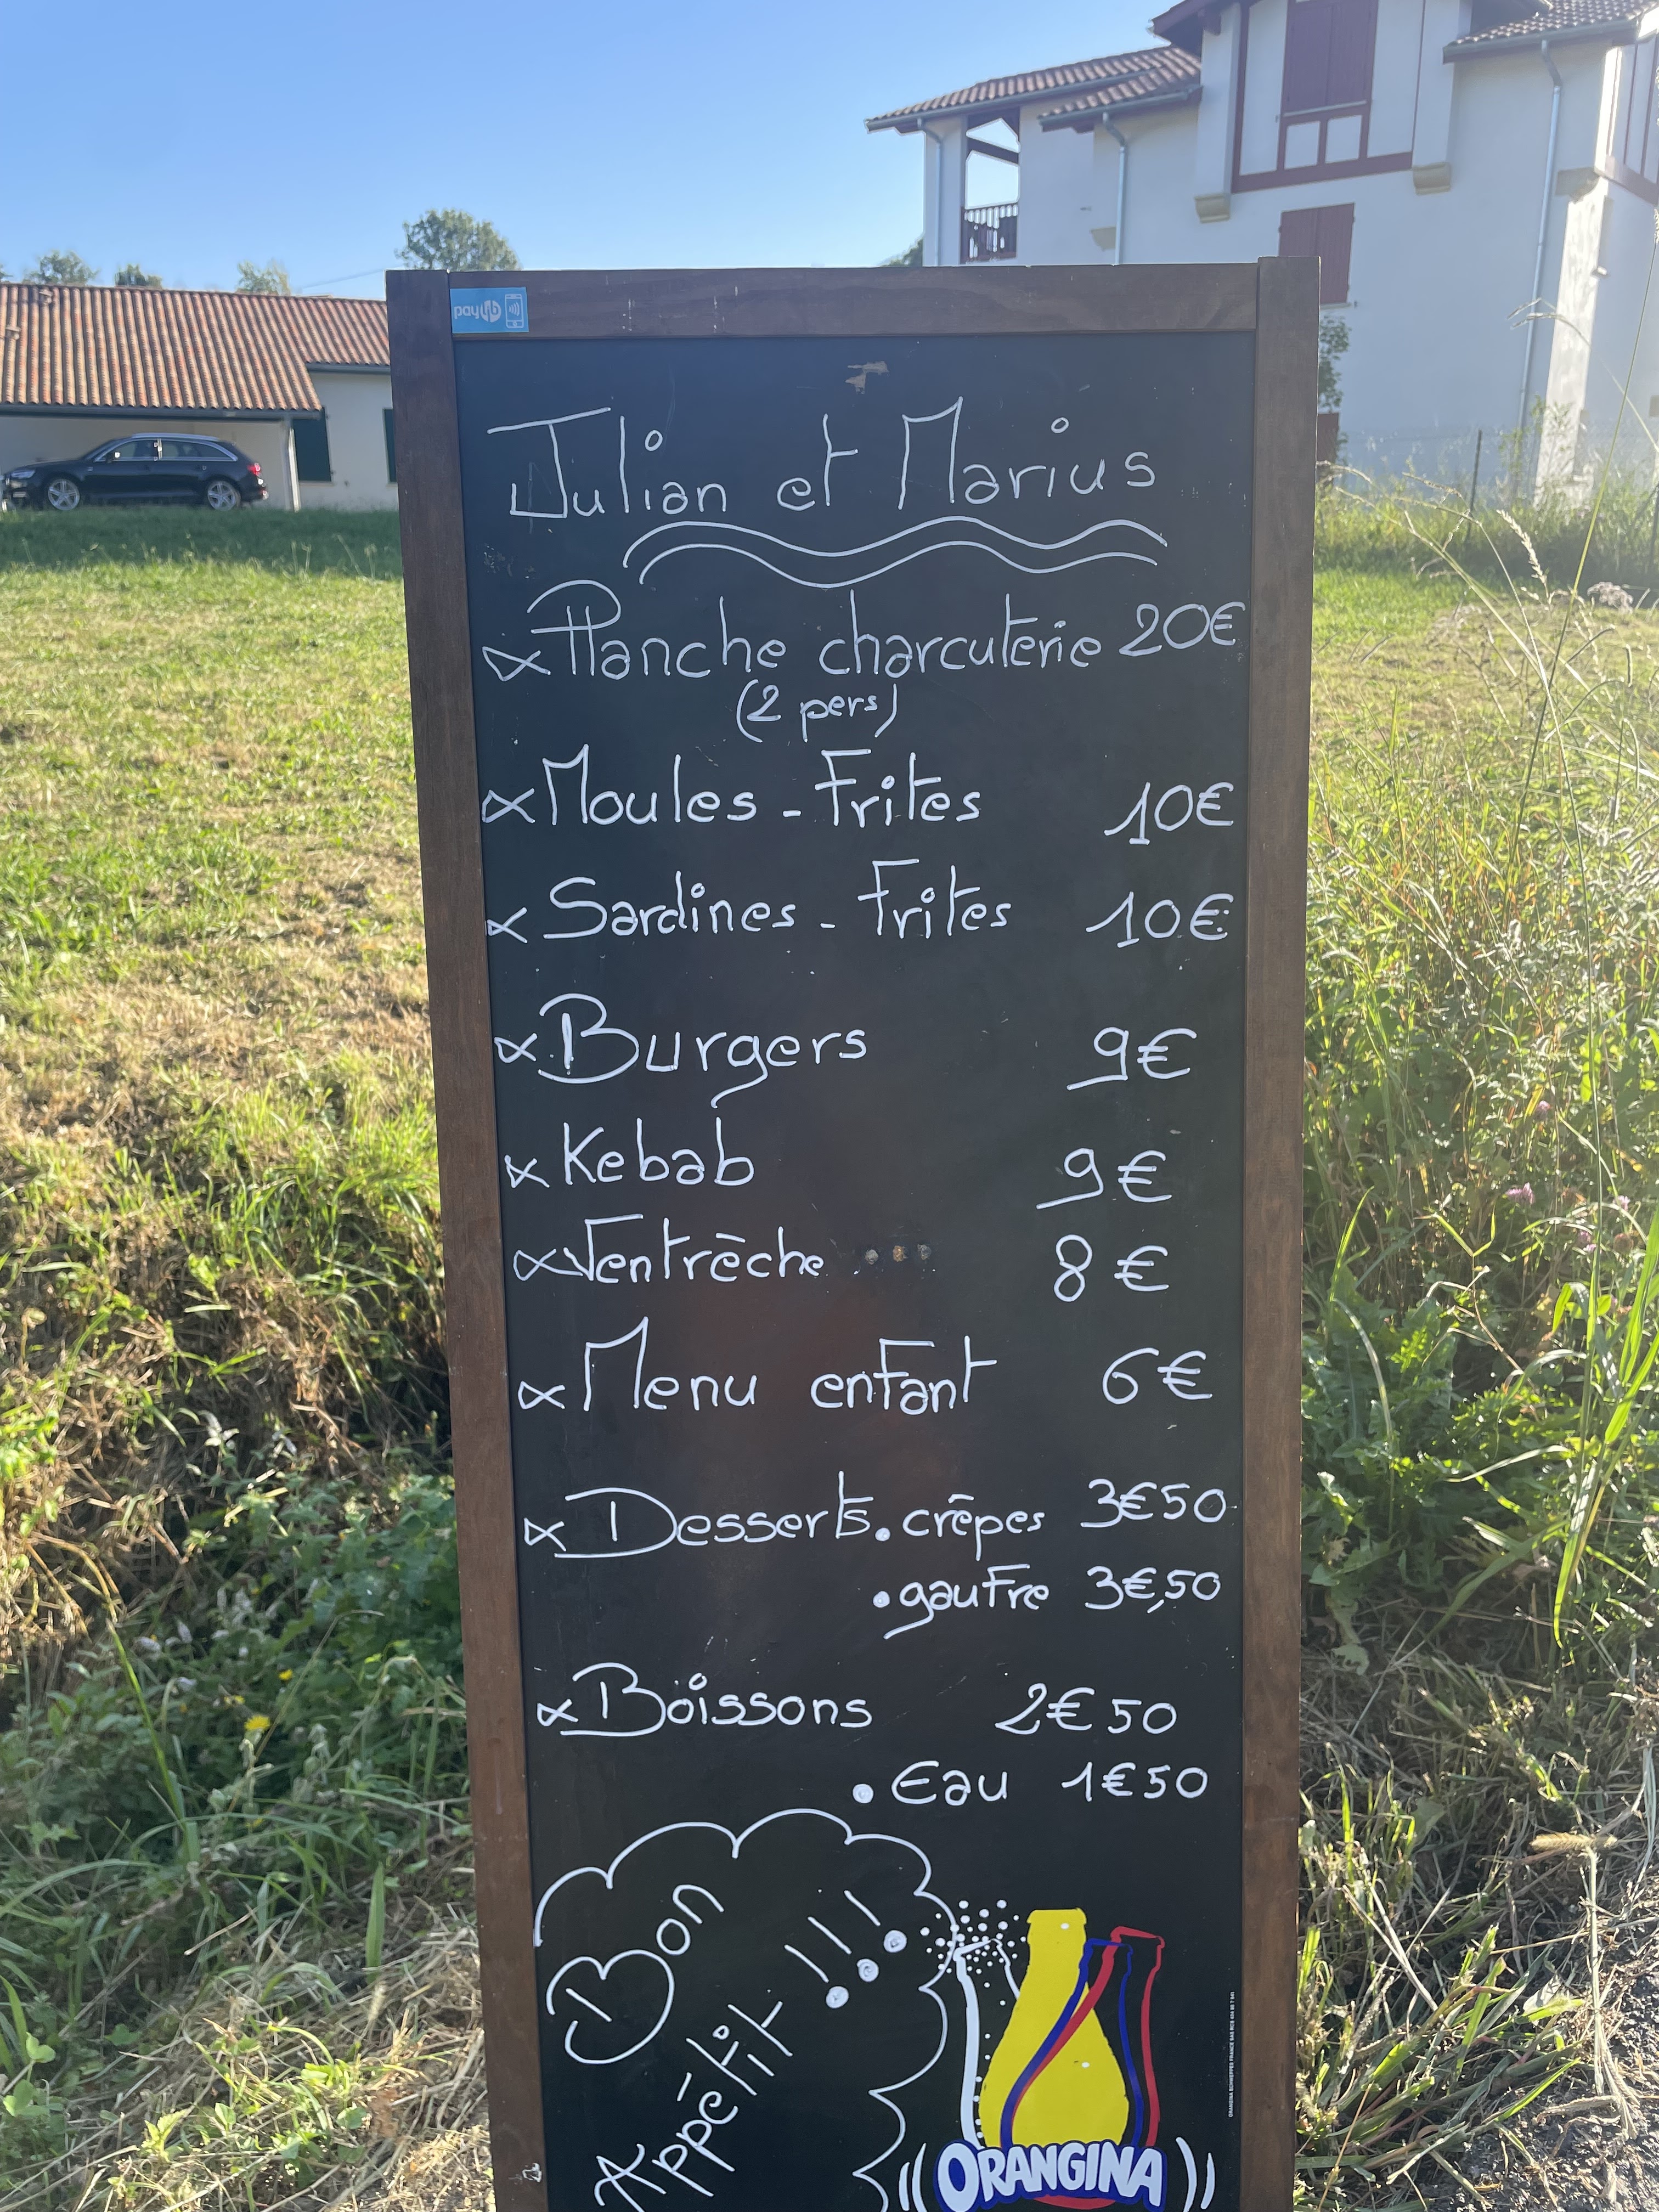 paylib
Julian et Marius
Planche charcuterie 20€
(2 pers)
Moules - Frites 10€
Sardines - Frites 10€
Burgers 9€
Kebab 9€
Ventrèche 8€
Menu enfant 6€
Desserts • crêpes 3€50
• gaufre 3€,50
Boissons 2€50
• Eau 1€50
Bon
Appétit !!!
ORANGINA